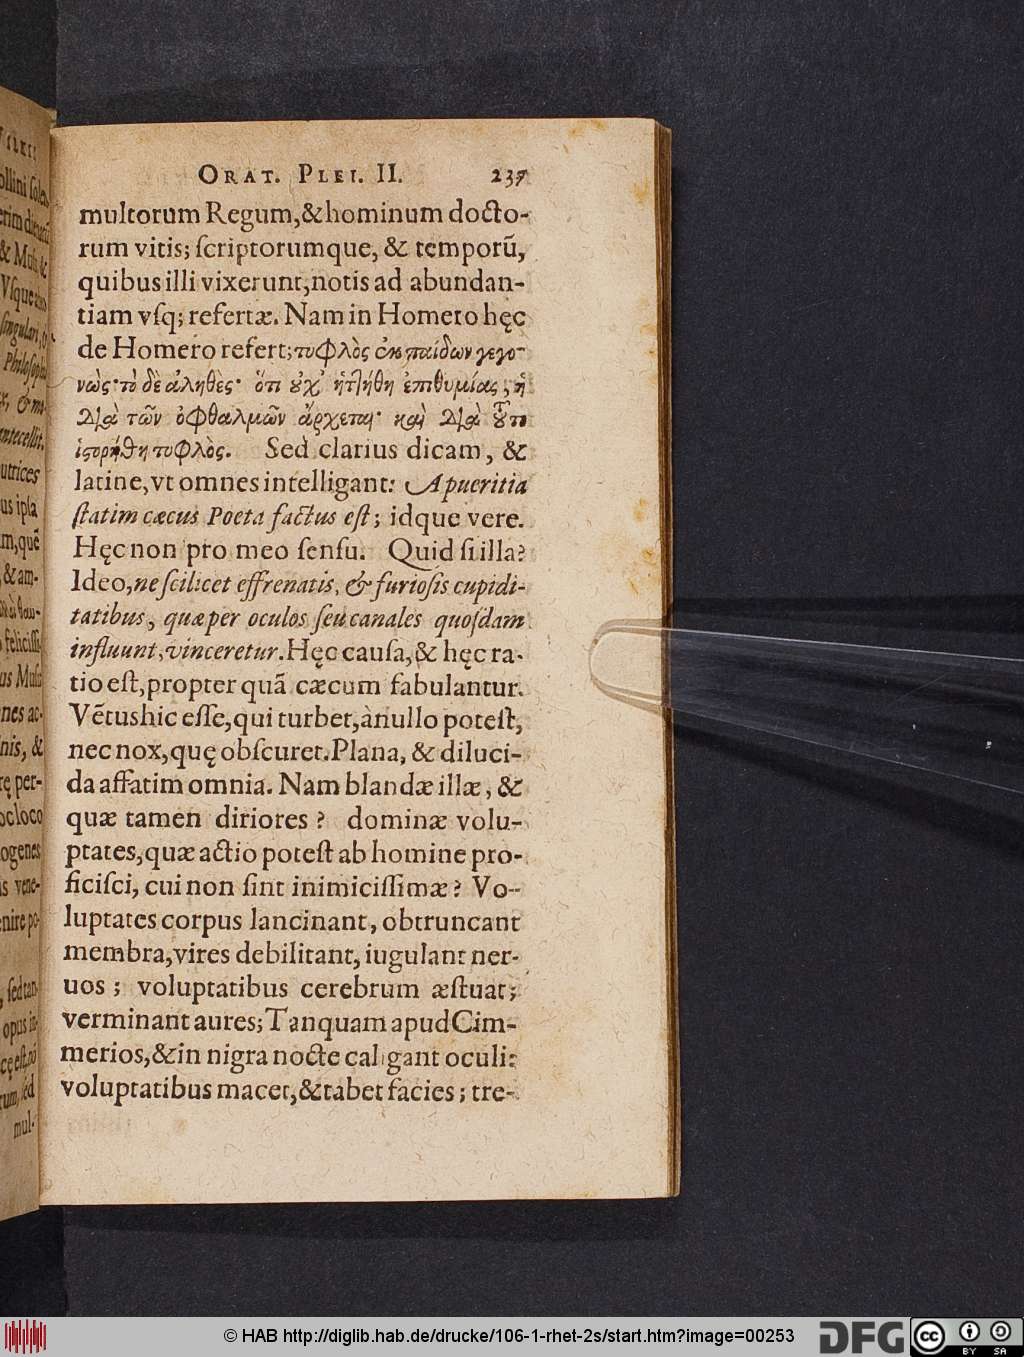 ORAT. PLEI. II. 237
multorum Regum,&hominum docto-
rum vitis; ſcriptorumque, & temporũ,
quibus illi vixerunt,notis ad abundan-
tiam vſq; refertæ. Nam in Homero hęc
de Homero refert;τυφλὸς ἐκ παίδων γεγο-
νὼς· τὸ δὲ ἀληθὲς· ὅτι οὐχ' ἡττήθη ἐπιθυμίας, ἡ
διὰ τῶν ὀφθαλμῶν ἄρχεται· καὶ διὰ τοῦτο
ἱστορήθη τυφλὸς. Sed clarius dicam, &
latine,vt omnes intelligant: A pueritia
ſtatim cæcus Poeta factus eſt; idque vere.
Hęc non pro meo ſenſu. Quid ſi illa?
Ideo,ne ſcilicet effrenatis, & furioſis cupidi-
tatibus, quæ per oculos ſeu canales quoſdam
influunt,vinceretur.Hęc cauſa,& hęc ra-
tio eſt,propter quã cæcum fabulantur.
Vẽtus hic eſſe,qui turbet,à nullo poteſt,
nec nox,quę obſcuret.Plana, & diluci-
da affatim omnia. Nam blandæ illæ, &
quæ tamen diriores ? dominæ volu-
ptates,quæ actio poteſt ab homine pro-
ficiſci, cui non ſint inimiciſſimæ? Vo-
luptates corpus lancinant, obtruncant
membra,vires debilitant, iugulant ner-
uos ; voluptatibus cerebrum æſtuat;
verminant aures;Tanquam apud Cim-
merios,&in nigra nocte caligant oculi:
voluptatibus macet,&tabet facies; tre-
© HAB http://diglib.hab.de/drucke/106-1-rhet-2s/start.htm?image=00253
DFG
cc BY SA